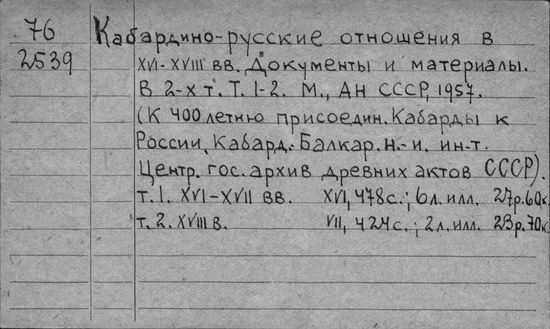 76 Кабардино-русские отношения в
2539 XVI-XVIII вв. Документы и материалы.
В 2-х т. Т. 1-2. М., АН СССР, 1957.
(К 400 летию присоедин. Кабарды к
России, Кабард.-Балкар. н.-и. ин-т.
Центр. гос. архив древних актов СССР).
т. 1. XVI-XVII вв. XVI, 478 с.; 6 л. илл. 27р. 60к.
т. 2. XVIII в. VII, 424 с.; 2 л. илл. 23р. 70к.